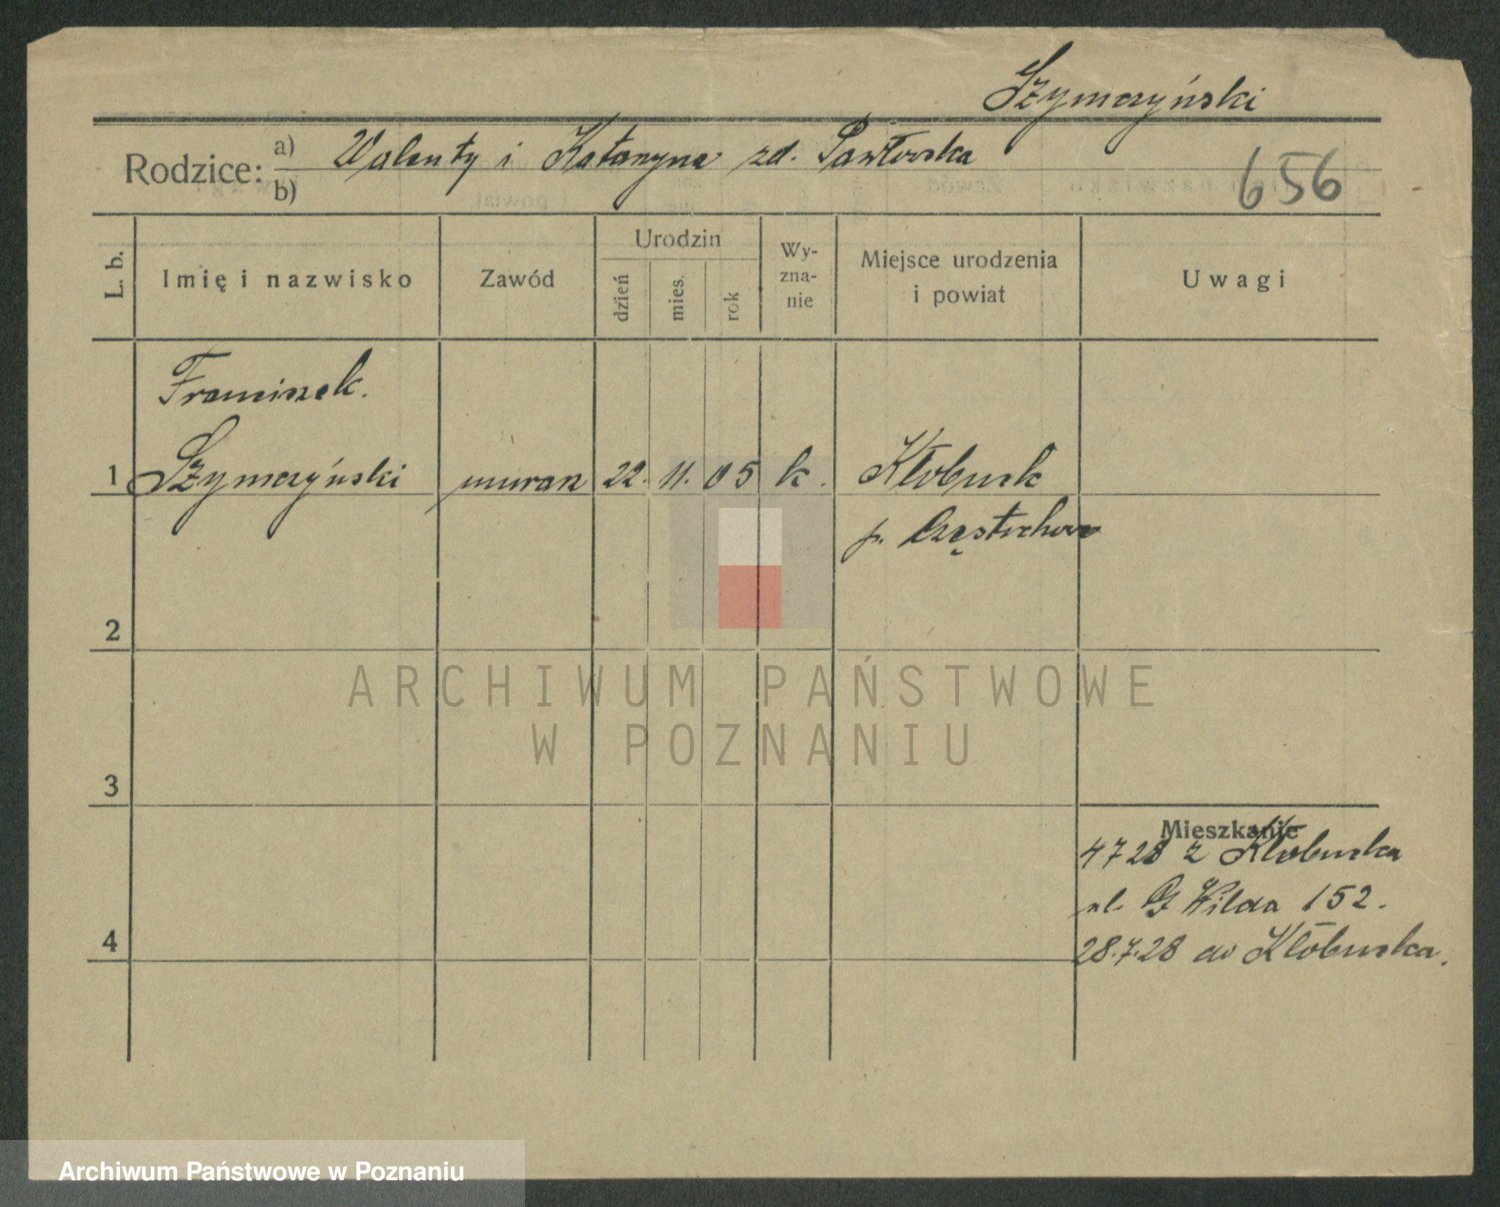 Szymczyński
Rodzice: a) Walenty i Katarzyna zd. Pawłowska
b)
656
L. b.
Imię i nazwisko
Zawód
Urodzin
dzień
mies.
rok
Wy-
zna-
nie
Miejsce urodzenia
i powiat
Uwagi
Franciszek.
1 Szymczyński murarz 22. 11. 05 k. Kłobuck
p. Częstochowa
2
3
4
ARCHIWUM PAŃSTWOWE
W POZNANIU
Mieszkanie
4 7 28 z Kłobucka
ul. G Wilda 152.
28.7.28 do Kłobucka.
Archiwum Państwowe w Poznaniu